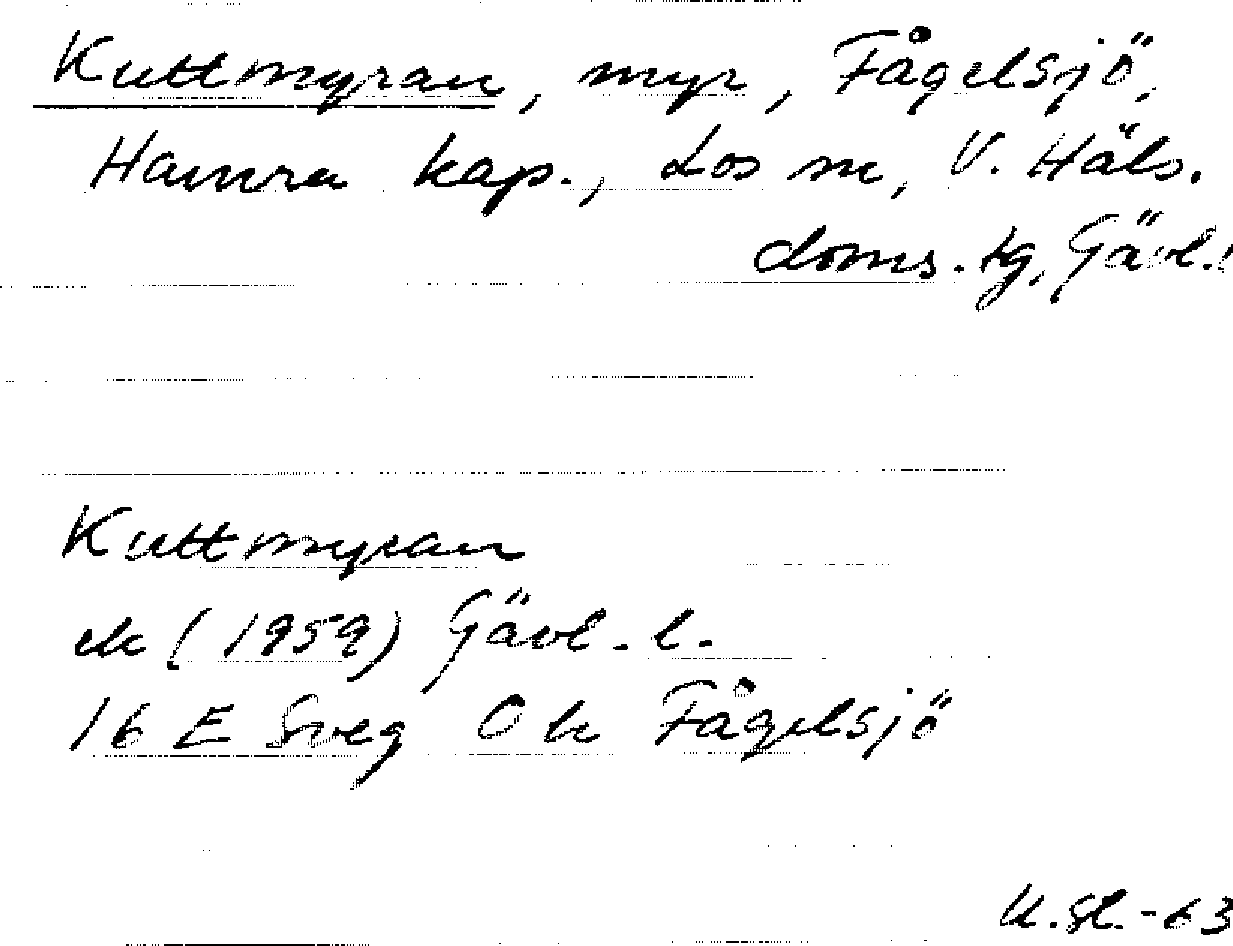 Kuttmyran, myr, Fågelsjö,
Hamra kap., Los sn, V. Häls.
doms.tg, Gävl.l
Kuttmyran
ek (1959) Gävl. l.
16 E Sveg 0 h Fågelsjö
-63